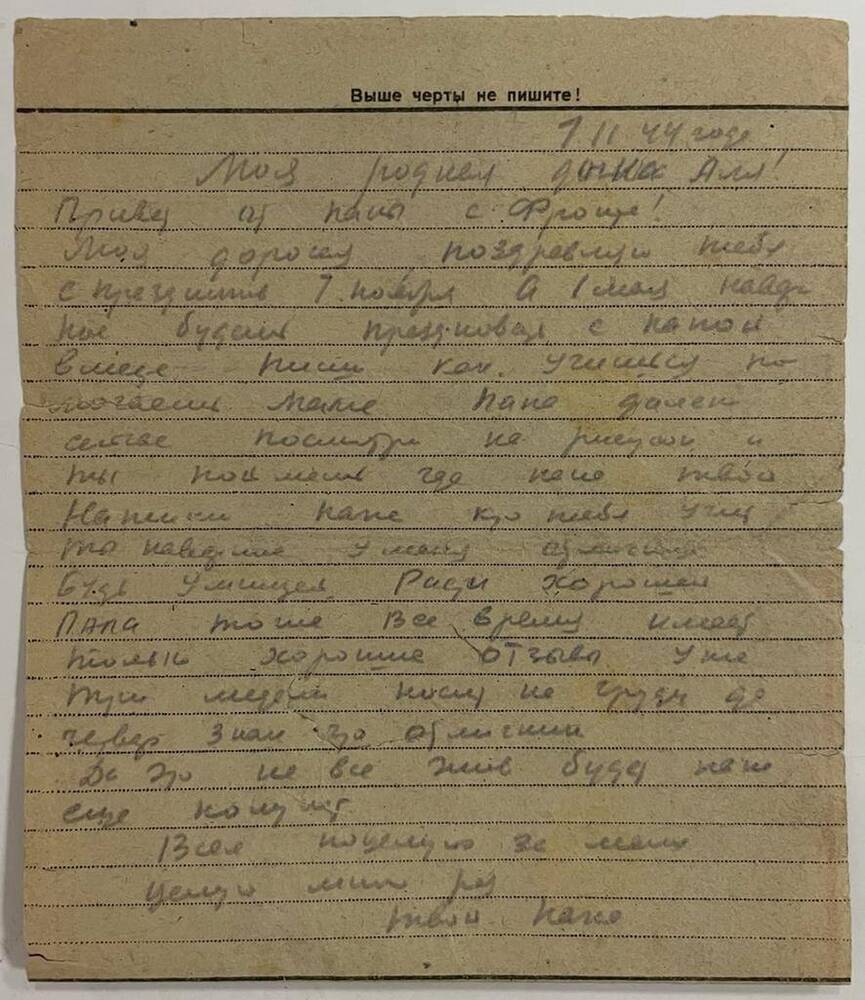 Выше черты не пишите!
7 11 44 года
Моя родная дочка Аля!
Привет от папы с Фронта!
Моя дорогая поздравляю тебя
с праздником 7 ноября А 1 мая наверн
ное будем праздновать с папой
вместе Пиши как учишься по
могаешь маме Папа далеко
сейчас посмотри на рисунок и
ты поймешь где папа твой
Напиши папе кто тебя учит
ты наверное у меня отличница
Будь умницей Ради хорошей
Папа тоже все время имеет
только хорошие отзывы уже
три медали носит на груди да
четвер знак что отличник
Да это не все жив буду папе
еще
Всех поцелуй за меня
целую много раз
твой папа